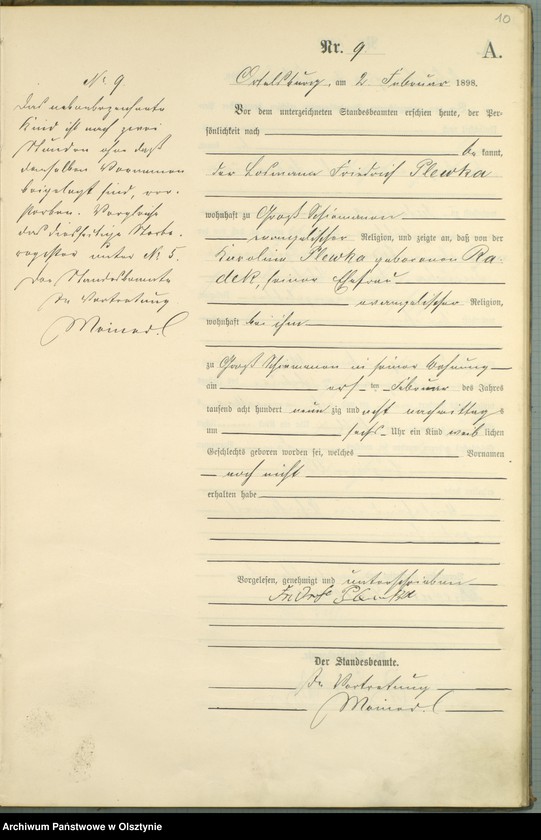 10
Nr. 9
A.
Ortelsburg, am 2 Februar 1898.
Vor dem unterzeichneten Standesbeamten erschien heute, der Per-
sönlichkeit nach
be kannt,
der Losmann Friedrich Plewka
wohnhaft zu Groß Schiemanen
evangelischer Religion, und zeigte an, daß von der
Karoline Plewka geborenen Ra-
dek, seiner Ehefrau
evangelischer Religion,
wohnhaft bei ihm
zu Groß Schiemanen in seiner Wohnung
am ersten Februar des Jahres
tausend acht hundert neun zig und acht nachmittags
um sechs Uhr ein Kind weib lichen
Geschlechts geboren worden sei, welches Vornamen
noch nicht
erhalten habe
Vorgelesen, genehmigt und unterschrieben
Plewka
Der Standesbeamte.
In Vertretung
No 9
Das nebenbezeichnete
Kind ist nach zwei
Stunden ohne daß
demselben Vornamen
beigelegt sind, ver-
storben. Vergleiche
das diesseitige Sterbe-
register unter No 5.
Der Standesbeamte
In Vertretung
Archiwum Państwowe w Olsztynie